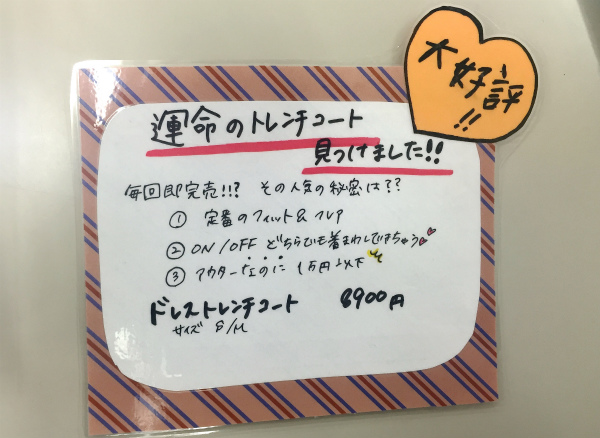 大好評!!
運命のトレンチコート
見つけました!!
毎回即完売!!? その人気の秘密は??
① 定番のフィット&フレア
② ON/OFF どちらでも着まわしできちゃう
③ アウターなのに 1万円以下
ドレストレンチコート 8900円
サイズ S/M